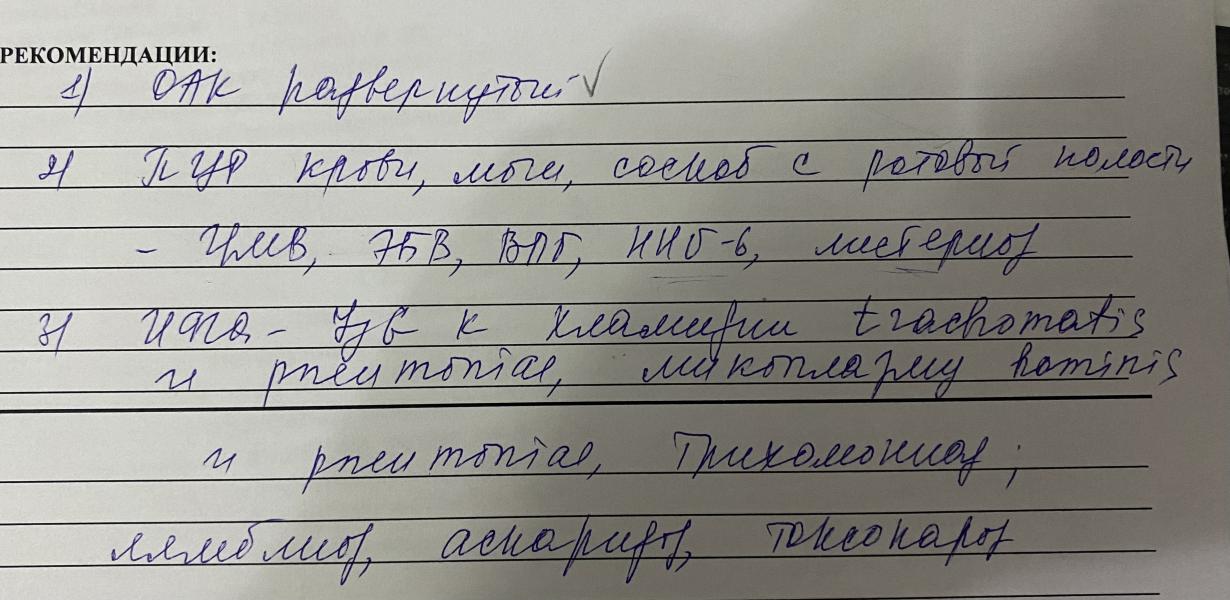 РЕКОМЕНДАЦИИ:
1) ОАК развернутый √
2) ПЦР крови, мочи, соскоб с ротовой полости
- ЦМВ, ЭБВ, ВПГ, ННГ-6, листериоз
3) ИФА - IgG к хламидии trachomatis
и pneumoniae, микоплазму hominis
и pneumoniae, Трихомониаз;
лямблиоз, аскаридоз, токсокароз